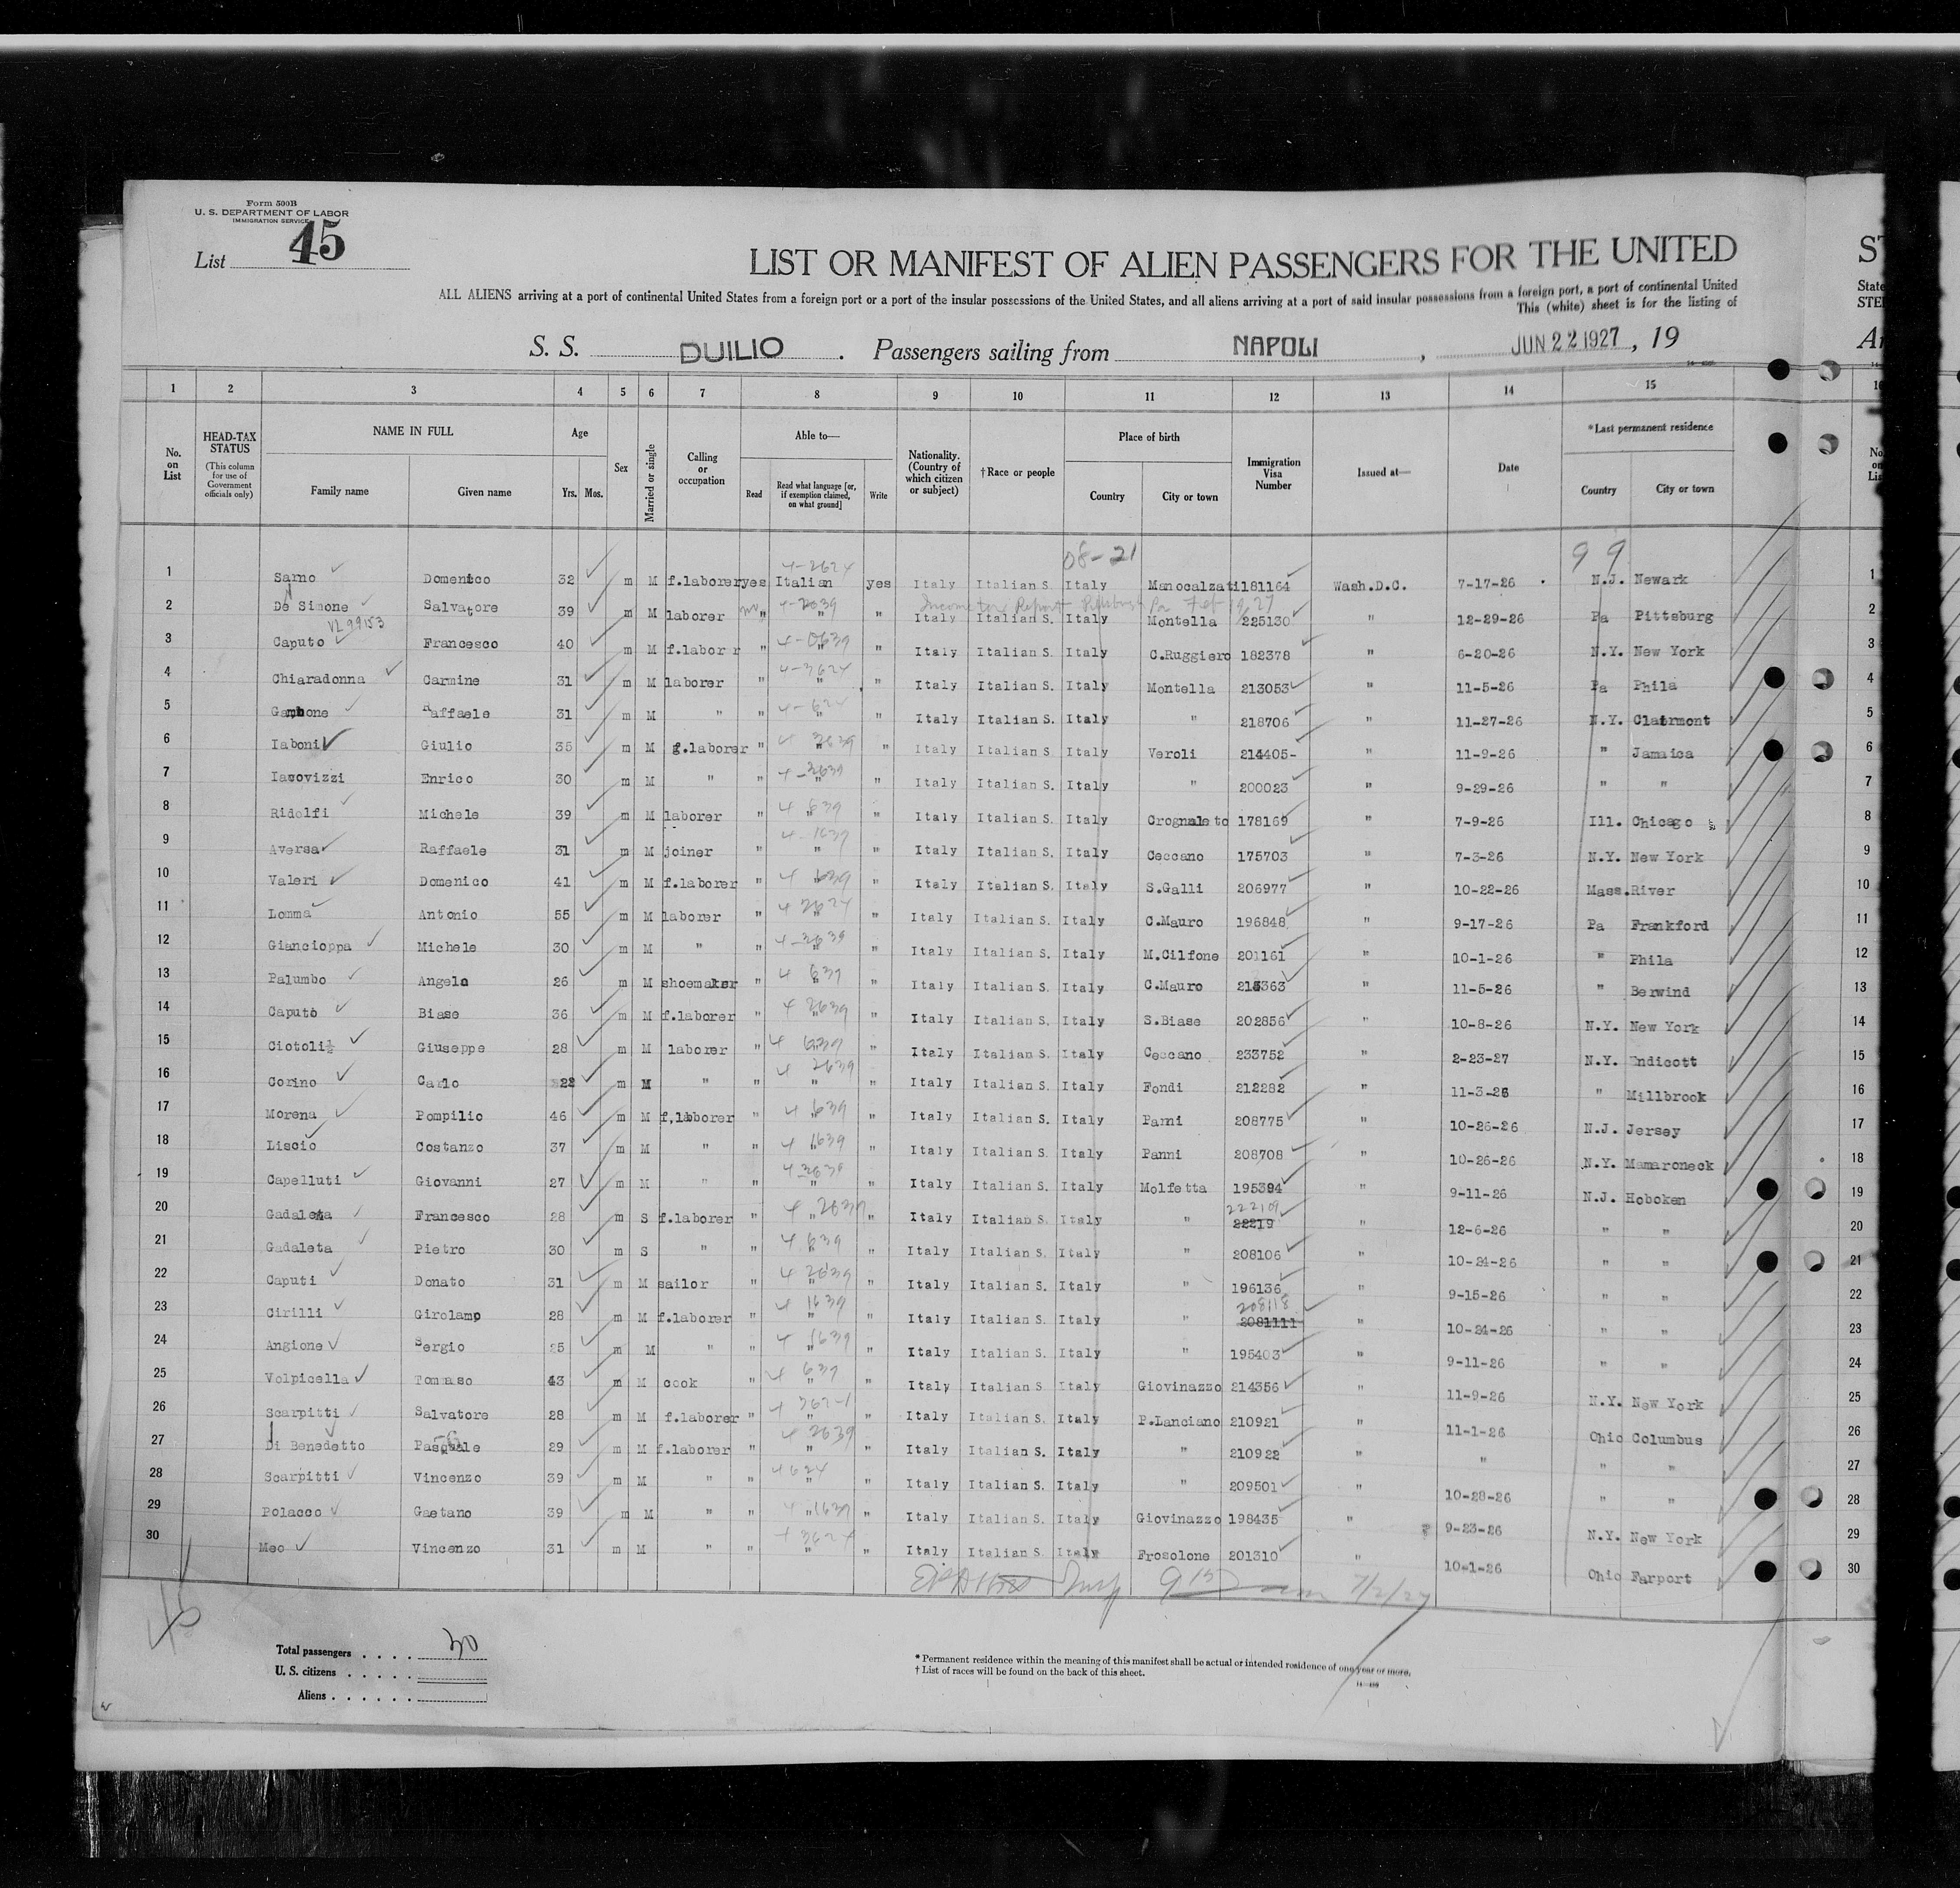 Form 500B
U. S. DEPARTMENT OF LABOR
IMMIGRATION SERVICE
List 45
LIST OR MANIFEST OF ALIEN PASSENGERS FOR THE UNITED
ALL ALIENS arriving at a port of continental United States from a foreign port or a port of the insular possessions of the United States, and all aliens arriving at a port of said insular possessions from a foreign port, a port of continental United
This (white) sheet is for the listing of
S. S. DUILIO. Passengers sailing from NAPOLI, JUN 22 1927, 19
1 2 3 4 5 6 7 8 9 10 11 12 13 14 15
No. on List
HEAD-TAX STATUS
(This column for use of Government officials only)
NAME IN FULL
Family name
Given name
Age
Yrs. Mos.
Sex
Married or single
Calling or occupation
Able to—
Read
Read what language [or, if exemption claimed, on what ground]
Write
Nationality. (Country of which citizen or subject)
†Race or people
Place of birth
Country
City or town
Immigration Visa Number
Issued at—
Date
*Last permanent residence
Country
City or town
08-21 99
1 Sarno Domenico 32 m M f.laborer yes Italian yes Italy Italian S. Italy Manocalzati 181164 Wash.D.C. 7-17-26 N.J. Newark
Income tax Report Pittsburgh Pa Feb 27
2 De Simone Salvatore 39 m M laborer " 4-2639 " Italy Italian S. Italy Montella 225130 " 12-29-26 Pa Pittsburg
VL 99153
3 Caputo Francesco 40 m M f.labor r " " Italy Italian S. Italy C.Ruggiero 182378 " 6-20-26 N.Y. New York
4 Chiaradonna Carmine 31 m M laborer " 4-3624 " Italy Italian S. Italy Montella 213053 " 11-5-26 Pa Phila
5 Gambone Raffaele 31 m M " " 4-624 " Italy Italian S. Italy " 218706 " 11-27-26 N.Y. Clairmont
6 Iaboni Giulio 35 m M g.laborer " " " Italy Italian S. Italy Veroli 214405- " 11-9-26 " Jamaica
7 Iacovizzi Enrico 30 m M " " 4-3639 " Italy Italian S. Italy " 200023 " 9-29-26 " "
8 Ridolfi Michele 39 m M laborer " 4 639 " Italy Italian S. Italy Crognaleto 178169 " 7-9-26 Ill. Chicago
9 Aversa Raffaele 31 m M joiner " 4-1639 " " Italy Italian S. Italy Ceccano 175703 " 7-3-26 N.Y. New York
10 Valeri Domenico 41 m M f.laborer " 4 639 " Italy Italian S. Italy S.Galli 206977 " 10-22-26 Mass. River
11 Lomma Antonio 55 m M laborer " 4 2624 " Italy Italian S. Italy C.Mauro 196848 " 9-17-26 Pa Frankford
12 Giancioppa Michele 30 m M " " 4-3639 " Italy Italian S. Italy M.Cilfone 201161 " 10-1-26 " Phila
13 Palumbo Angelo 26 m M shoemaker " 4 639 " Italy Italian S. Italy C.Mauro 215363 " 11-5-26 " Berwind
14 Caputo Biase 36 m M f.laborer " 4 2639 " Italy Italian S. Italy S.Biase 202856 " 10-8-26 N.Y. New York
15 Ciotoli Giuseppe 28 m M laborer " 4 639 " Italy Italian S. Italy Ceccano 233752 " 2-23-27 N.Y. Endicott
16 Corino Carlo 22 m M " " 4 2639 " " Italy Italian S. Italy Fondi 212282 " 11-3-26 " Millbrook
17 Morena Pompilio 46 m M f.laborer " 4 639 " Italy Italian S. Italy Panni 208775 " 10-26-26 N.J. Jersey
18 Liscio Costanzo 37 m M " " 4 1639 " Italy Italian S. Italy Panni 208708 " 10-26-26 N.Y. Mamaroneck
19 Capelluti Giovanni 27 m M " " 4-3639 " " Italy Italian S. Italy Molfetta 195394 " 9-11-26 N.J. Hoboken
20 Gadaleta Francesco 28 m S f.laborer " 4 " 2639 " Italy Italian S. Italy " 22219 222109 " 12-6-26 " "
21 Gadaleta Pietro 30 m S " " 4 639 " Italy Italian S. Italy " 208106 " 10-24-26 " "
22 Caputi Donato 31 m M sailor " 4 2639 " Italy Italian S. Italy " 196136 " 9-15-26 " "
23 Cirilli Girolamo 28 m M f.laborer " 4 1639 " " Italy Italian S. Italy " 2081111 208118 " 10-24-26 " "
24 Angione Sergio 25 m M " " 4 1639 " " Italy Italian S. Italy " 195403 " 9-11-26 " "
25 Volpicella Tommaso 43 m M cook " 4 639 " " Italy Italian S. Italy Giovinazzo 214356 " 11-9-26 N.Y. New York
26 Scarpitti Salvatore 28 m M f.laborer " " " Italy Italian S. Italy P.Lanciano 210921 " 11-1-26 Ohio Columbus
27 Di Benedetto Pasquale 29 m M f.laborer " 4 2639 " " Italy Italian S. Italy " 210922 " " " "
28 Scarpitti Vincenzo 39 m M " " 4 624 " " Italy Italian S. Italy " 209501 " 10-28-26 " "
29 Polacco Gaetano 39 m M " " 4 " 1639 " Italy Italian S. Italy Giovinazzo 198435 " 9-23-26 N.Y. New York
30 Meo Vincenzo 31 m M " " 4 3624 " " Italy Italian S. Italy Frosolone 201310 " 10-1-26 Ohio Farport
7/2/27
45
Total passengers . . . . 30
U. S. citizens . . . . .
Aliens . . . . . .
* Permanent residence within the meaning of this manifest shall be actual or intended residence of one year or more.
† List of races will be found on the back of this sheet.